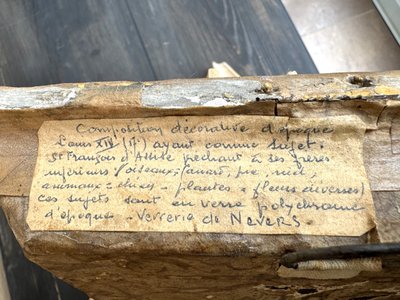 Composition décorative d'époque
Louis XIV (17) ayant comme sujet:
St François d'Assise prêchant à ses frères
inférieurs oiseaux:
animaux: chiens - plantes - fleurs diverses)
ces sujets sont en verre polychrome
d'époque - Verrerie de Nevers.